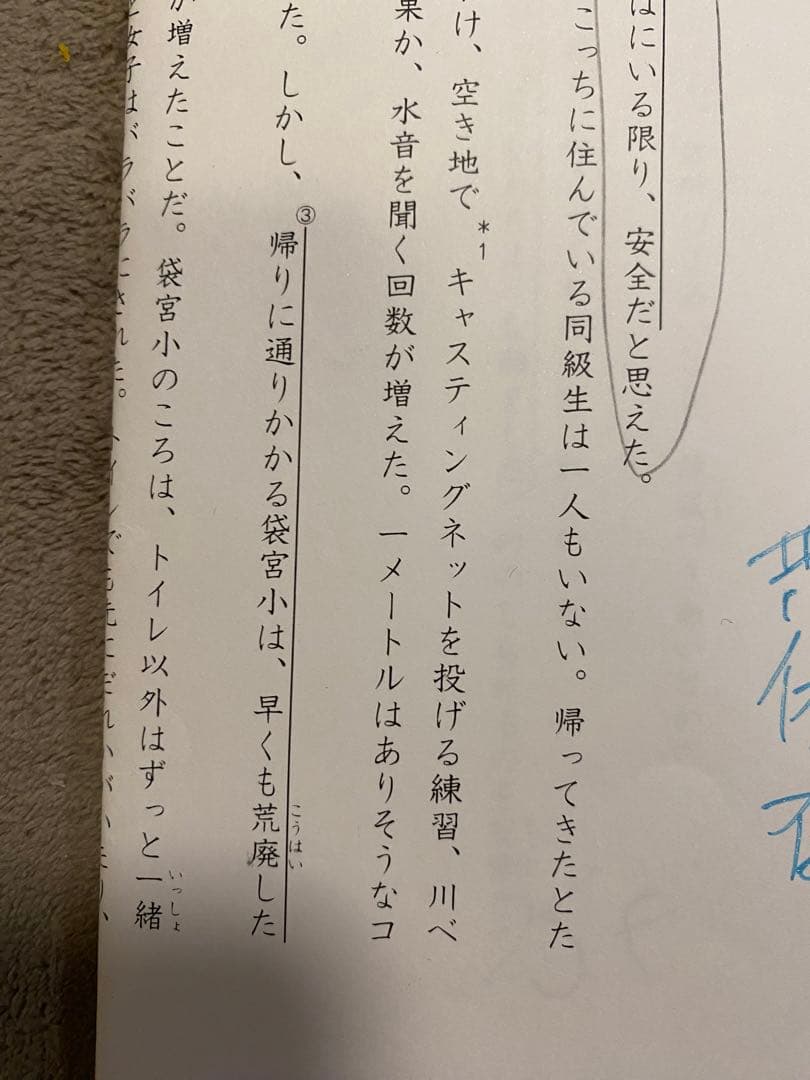 ばにいる限り、安全だと思えた。
こっちに住んでいる同級生は一人もいない。帰ってきたとた
け、空き地で*1キャスティングネットを投げる練習、川べ
果か、水音を聞く回数が増えた。一メートルはありそうなコ
た。しかし、③帰りに通りかかる袋宮小は、早くも荒廃した
こうはい
が増えたことだ。袋宮小のころは、トイレ以外はずっと一緒
いっしょ
女子はバラバラにされた。